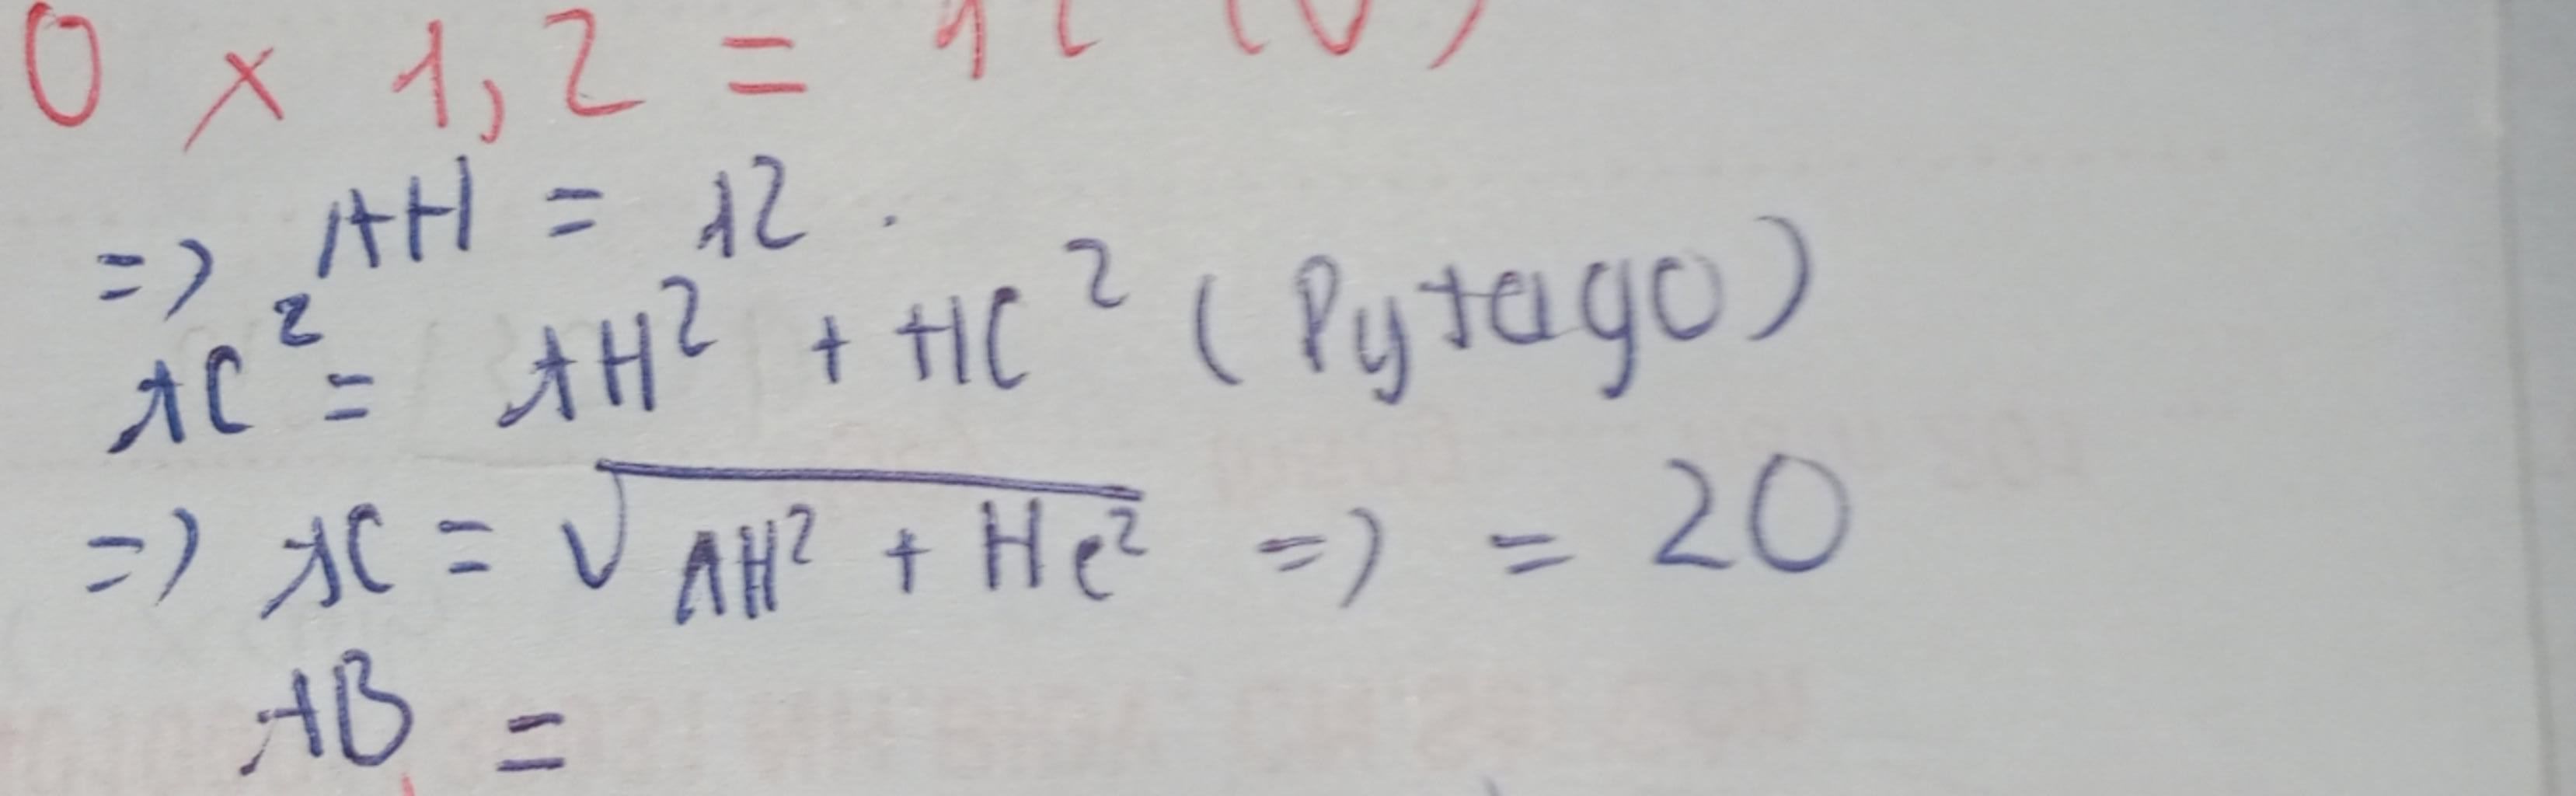 0 x 1,2 = 12 (V)
=> AH = 12.
AC² = AH² + HC² (Pytago)
=> AC = √AH² + HC² => = 20
AB =